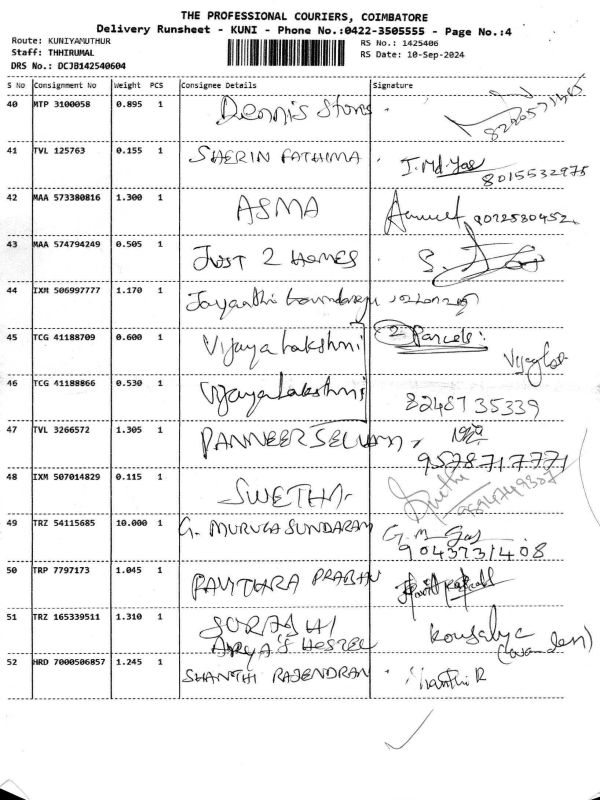 THE PROFESSIONAL COURIERS, COIMBATORE
Delivery Runsheet - KUNI - Phone No.:0422-3505555 - Page No.:4
Route: KUNIYAMUTHUR
Staff: THHIRUMAL
DRS No.: DCJB142540604
RS No.: 1425406
RS Date: 10-Sep-2024
S No Consignment No Weight PCS Consignee Details Signature
40 MTP 3100058 0.895 1 Dennis Stores
41 TVL 125763 0.155 1 SHERIN FATHIMA
8015532975
42 MAA 573380816 1.300 1 ASMA
43 MAA 574794249 0.505 1 JUST 2 HOMES
44 IXM 506997777 1.170 1 Jayanthi
45 TCG 41188709 0.600 1 Vijayalakshmi 2 Parcels:
46 TCG 41188866 0.530 1 Vijayalakshmi
8248735339
47 TVL 3266572 1.305 1 PANNEERSELVAM
9578717771
48 IXM 507014829 0.115 1 SWETHA
49 TRZ 54115685 10.000 1 G. MURUGASUNDARAM
9043731408
50 TRP 7797173 1.045 1 PAVITHRA PRABHU
51 TRZ 165339511 1.310 1 Kousalya
ARYA'S HOSTEL
52 HRD 7000506857 1.245 1 SHANTHI RAJENDRAN Shanthi R